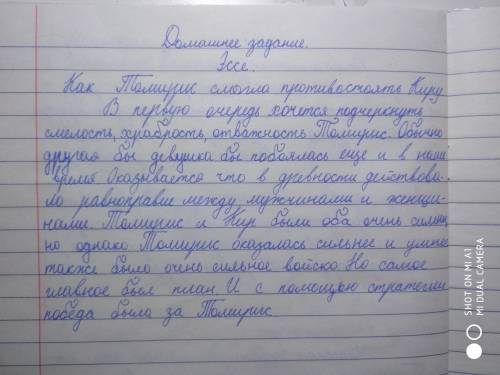 Домашнее задание.
Эссе.
Как Томирис смогла противостоять Киру
В первую очередь хочется подчеркнуть
смелость, храбрость, отважность Томирис. Обычно
другая бы девушка бы побоялась еще и в наше
время. Оказывается что в древности действова-
ло равноправие между мужчинами и женщи-
нами. Томирис и Кир были оба очень сильны
но однако Томирис оказалась сильнее и умнее
также было очень сильное войско. Но самое
главное был план И с помощью стратегии
победа была за Томирис
SHOT ON MI A1
MI DUAL CAMERA